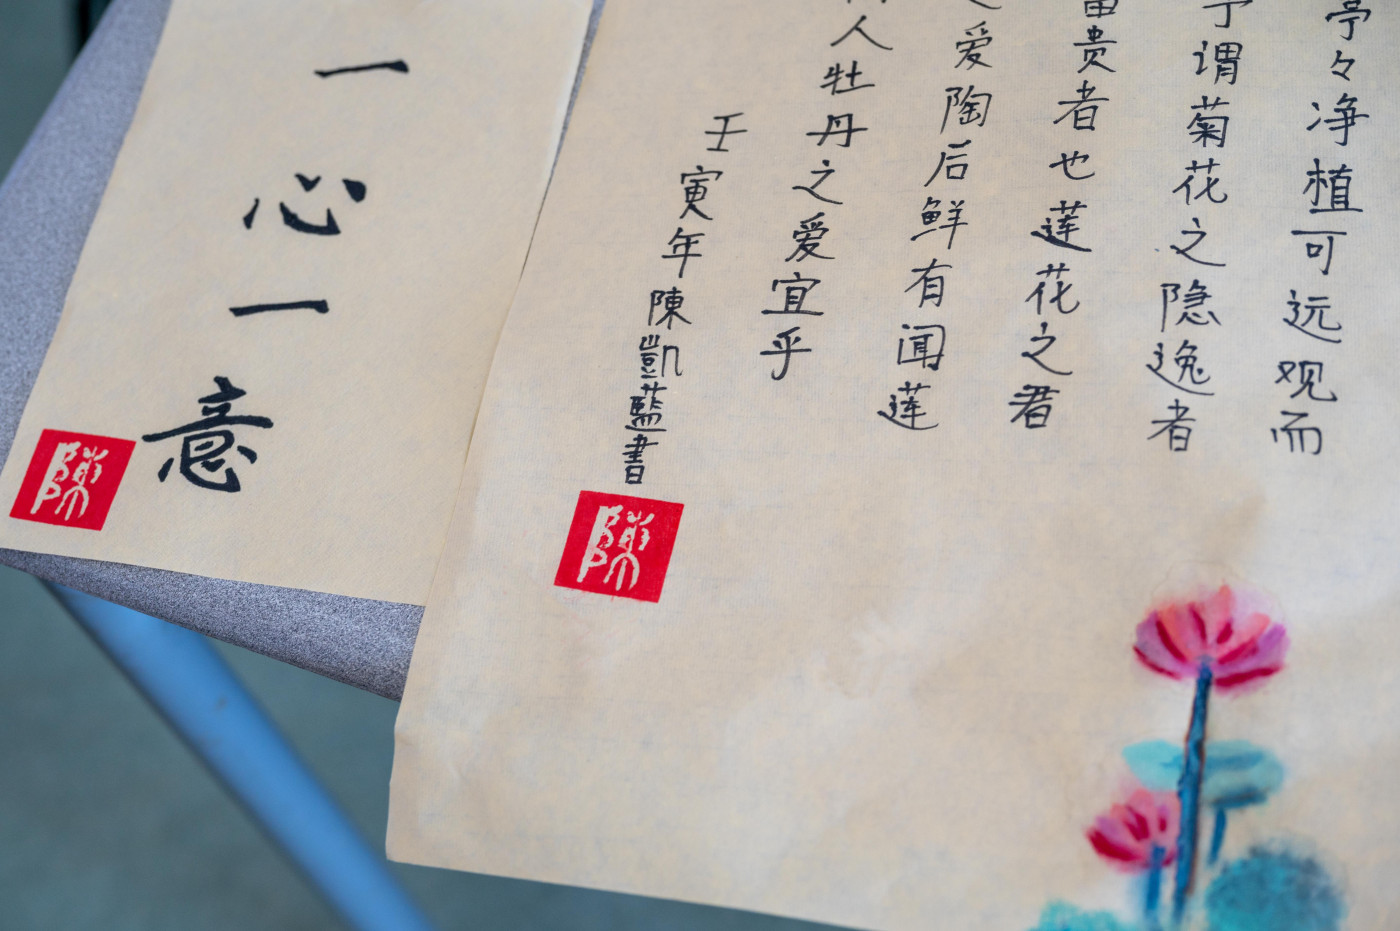 亭々净植可远观而
予谓菊花之隐逸者
富贵者也莲花之君
爱陶后鲜有闻莲
人牡丹之爱宜乎
壬寅年陳凱藍書
陳
一心一意
陳